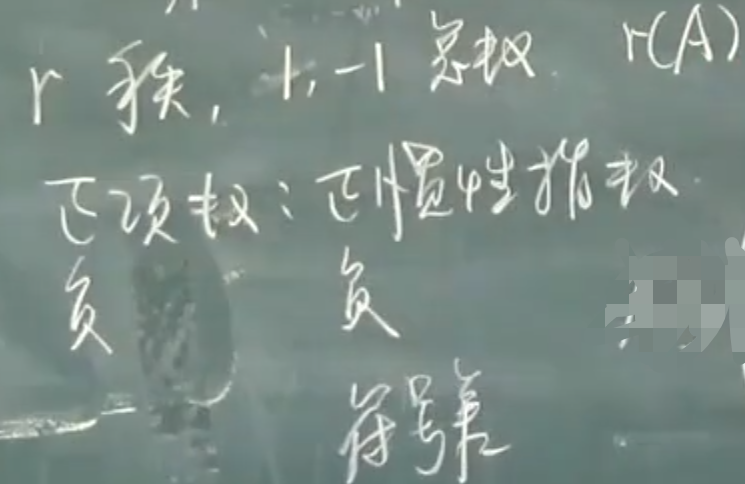 r 秩, 1, -1 总数. r(A)
正项数: 正惯性指数.
负 负
符号差